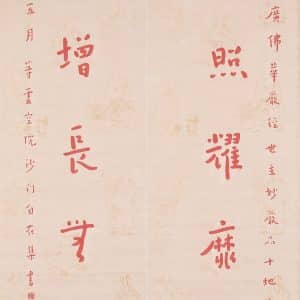 廣佛華嚴經世主妙嚴品十地
照耀靡
增長無
五月雲院沙門自在集書